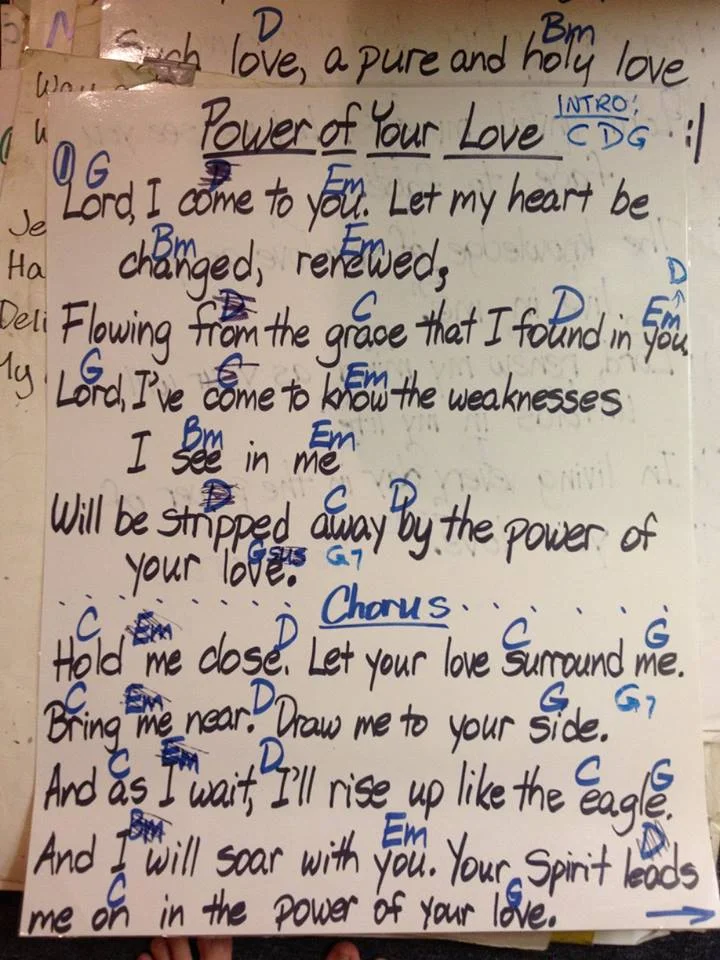 D Bm
Such love, a pure and holy love
Way
Power of Your Love INTRO: C D G :|
① G D Em
Lord, I come to you. Let my heart be
Bm Em
changed, renewed,
D C D Em ↑ D
Flowing from the grace that I found in you
G C Em
Lord, I've come to know the weaknesses
Bm Em
I see in me
D C D
Will be stripped away by the power of
Gsus G7
your love.
Chorus
C Em D C G
Hold me close. Let your love surround me.
C Em D G G7
Bring me near. Draw me to your side.
C Em D C G
And as I wait, I'll rise up like the eagle.
Bm Em D
And I will soar with you. Your Spirit leads
C G
me on in the power of your love. →
Je
Ha
Deli
My